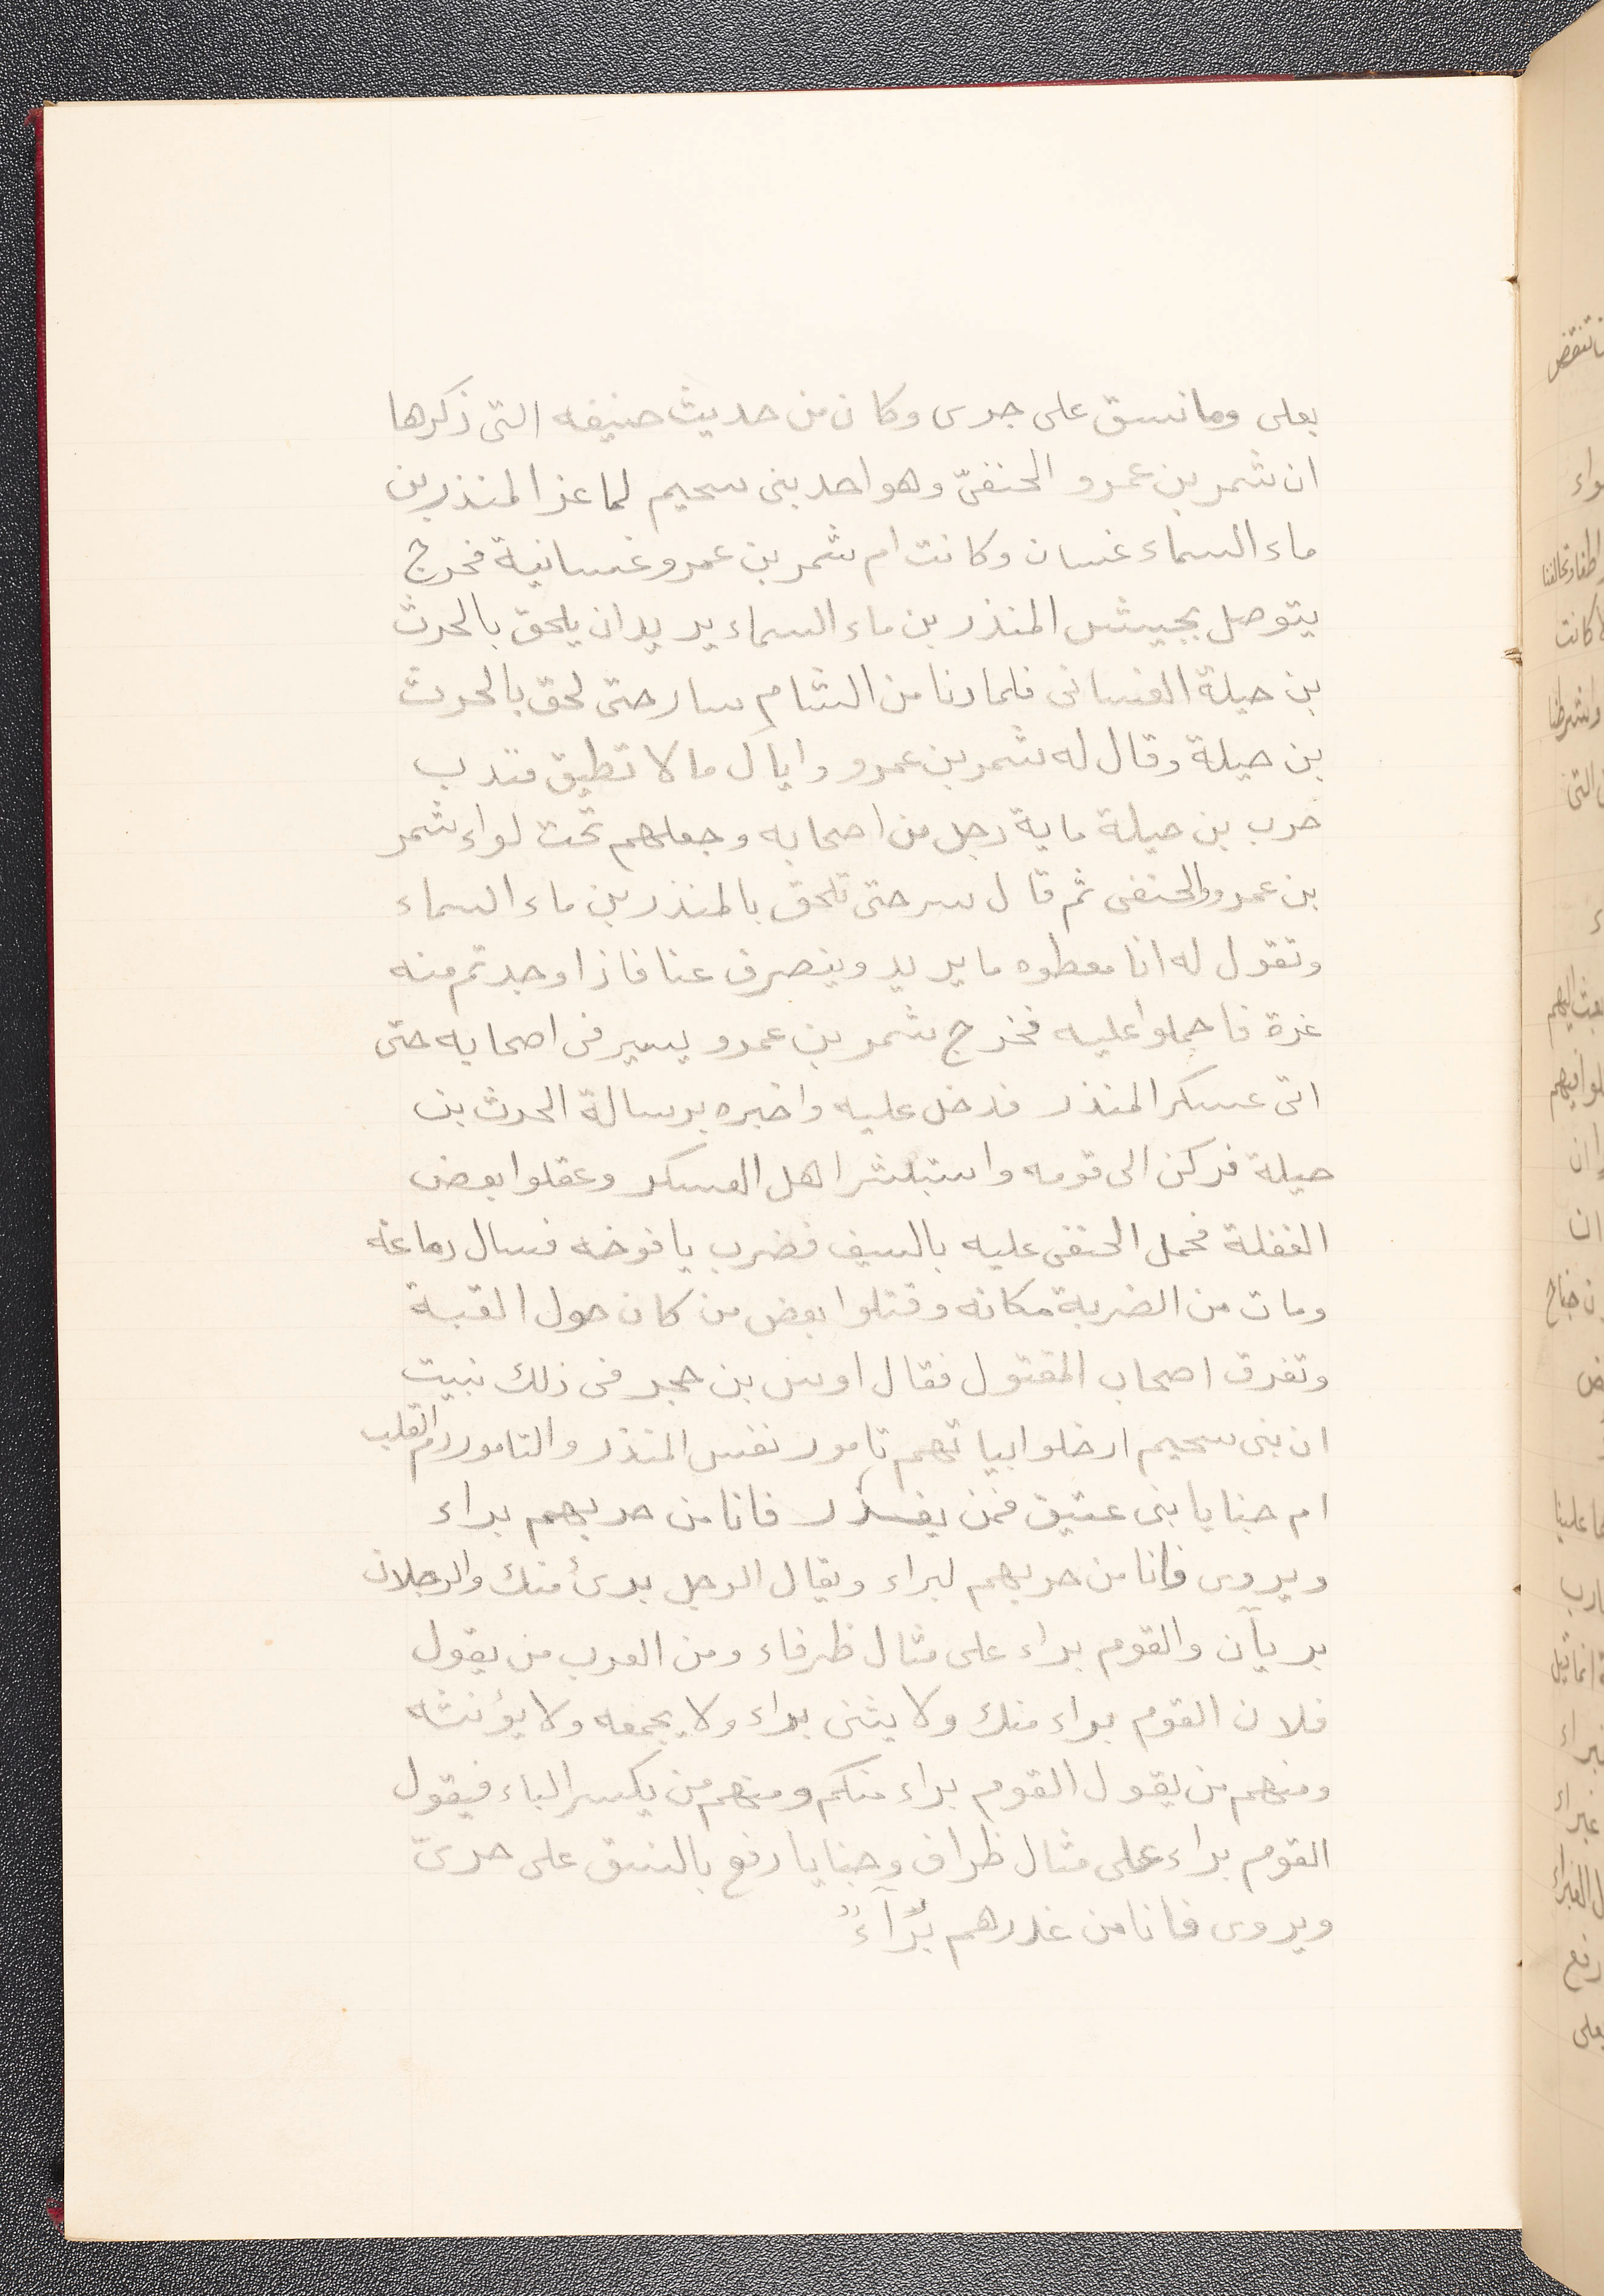 بعلى وما نسق على جرى وكان من حديث حنيفه التى ذكرها
ان شمر بن عمرو الحنفىّ وهو احد بنى سحيم لما غزا المنذر بن
ماء السماء غسان وكانت ام شمر بن عمرو غسانية فخرج
يتوصل بجيش المنذر بن ماء السماء يريد ان يلحق بالحرث
بن حبلة الغسانى فلما دنا من الشام سار حتى لحق بالحرث
بن حبلة وقال له شمر بن عمرو واياك ما لا تطيق فندب
خرب بن حبلة ماية رجل من اصحابه وجعلهم تحت لواء شمر
بن عمرو والحنفى ثم قال سر حتى تلحق بالمنذر بن ماء السماء
وتقول له انا معطوه ما يريد وينصرف عنا فاذا وجدتم منه
غرة فاحملوا عليه فخرج شمر بن عمرو يسير فى اصحابه حتى
اتى عسكر المنذر فدخل عليه واخبره برسالة الحرث بن
حبلة فركن الى قومه واستبشر اهل العسكر وعقلوا بعض
الغفلة فحمل الحنفى عليه بالسيف فضرب يافوخه فسال دماغه
ومات من الضربة مكانه وقتلوا بعض من كان حول القبة
وتفرق اصحاب المقتول فقال اوس بن حجر فى ذلك نبيت
ان بنى سحيم ادخلوا ابياتهم تامور نفس المنذر والتامور دم القلب
ام جنايا بنى عتيق فمن يغدر فانا من حربهم براء
ويروى فانا من حربهم لبراء ويقال الرجل برىٔ منك والرجلان
بريآن والقوم براء على مثال ظرفاء ومن العرب من يقول
فلان القوم براء منك ولا يثنى براء ولا يجمعه ولا يؤنثه
ومنهم من يقول القوم براء منكم ومنهم من يكسر الباء فيقول
القوم براء على مثال ظراف وجنايا رفع بالنسق على حرىّ
ويروى فانا من غدرهم بُرَآءُ